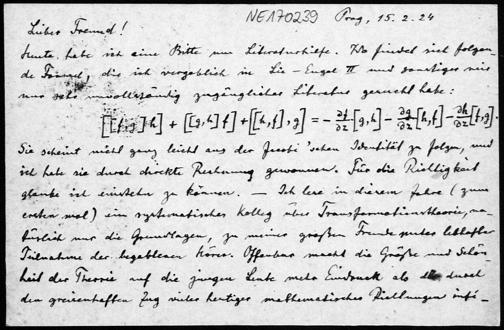 NE170239 Prag, 15.2.24
Lieber Freund!
Heute habe ich eine Bitte um Literaturhilfe. Wo findet sich folgen-
de Formel, die ich vergeblich in Lie-Engel II und sonstiger mir
nur sehr unvollständig zugänglicher Literatur gesucht habe:
[[f,g]h] + [[g,h]f] + [[h,f],g] = - ∂f/∂z [g,h] - ∂g/∂z [h,f] - ∂h/∂z [f,g].
Sie scheint nicht ganz leicht aus der Jacobi'schen Identität zu folgen, und
ich habe sie durch direkte Rechnung gewonnen. Für die Richtigkeit
glaube ich einstehn zu können. — Ich lese in diesem Jahre (zum
ersten mal) ein systematisches Kolleg über Transformationstheorie, na-
türlich nur die Grundlagen, zu meiner großen Freude unter lebhafter
Teilnahme der begabteren Hörer. Offenbar macht die Größe und Schön-
heit der Theorie auf die jungen Leute mehr Eindruck als durch
den greisenhaften Zug vieler heutiger mathematischer Richtungen infi-